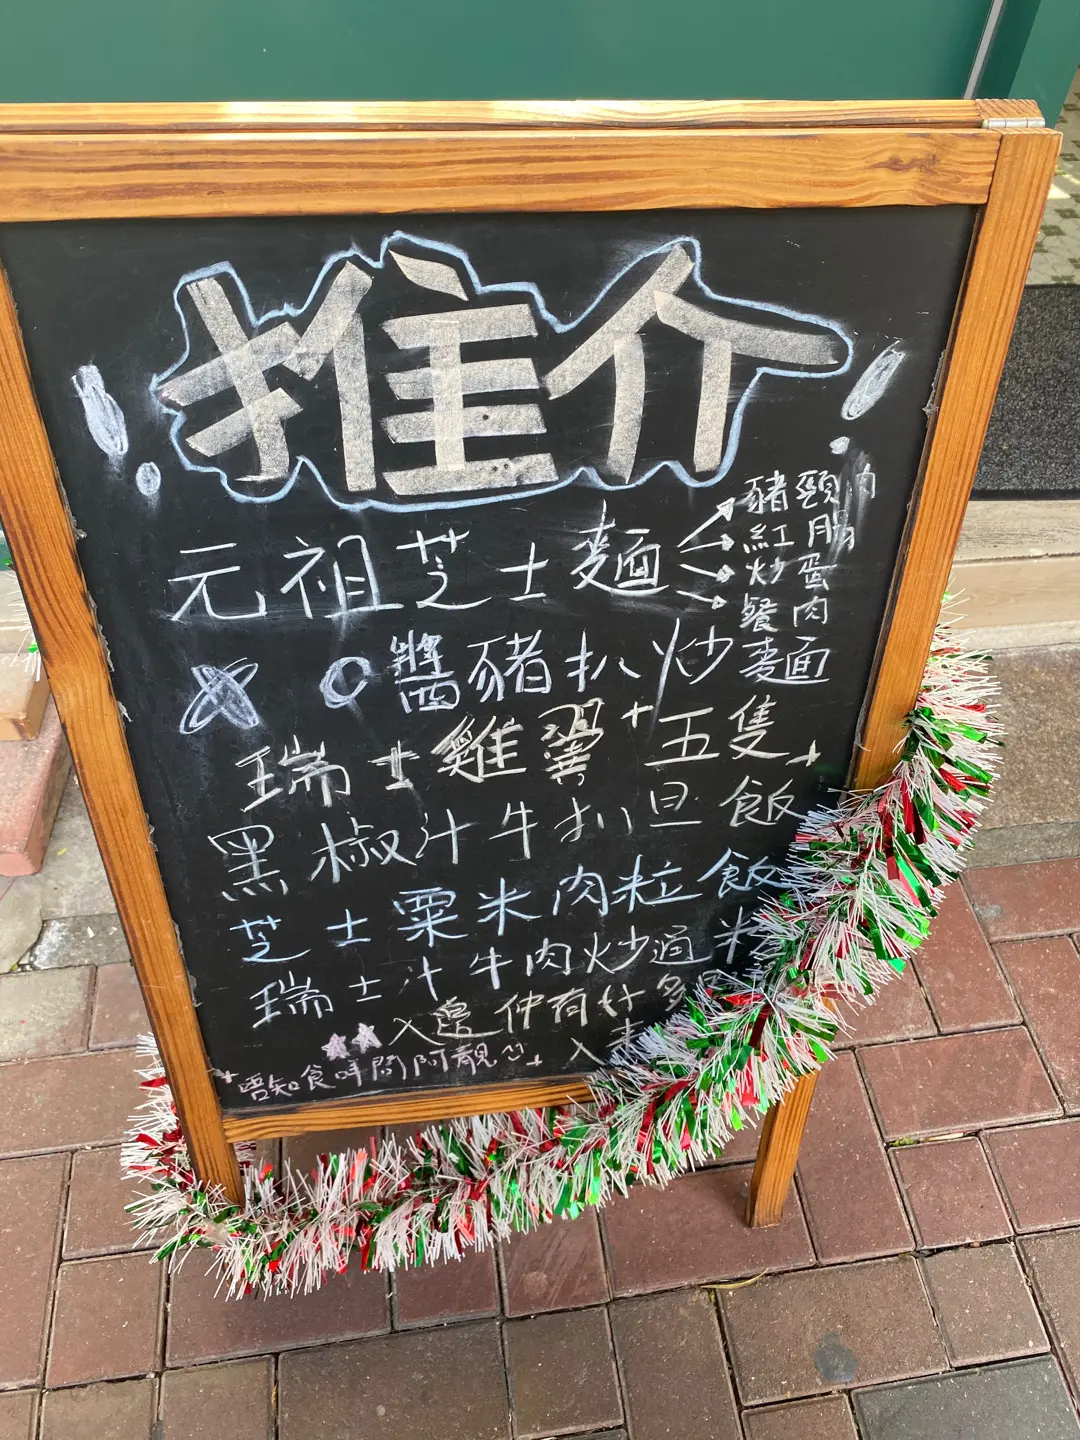 推介
元祖芝士麵
豬頸肉
紅腸
炒蛋
餐肉
XO醬豬扒炒麵
瑞士雞翼五隻
黑椒汁牛扒旦飯
芝士粟米肉粒飯
瑞士汁牛肉炒通粉
入邊仲有好多
唔知食咩問阿靚
入